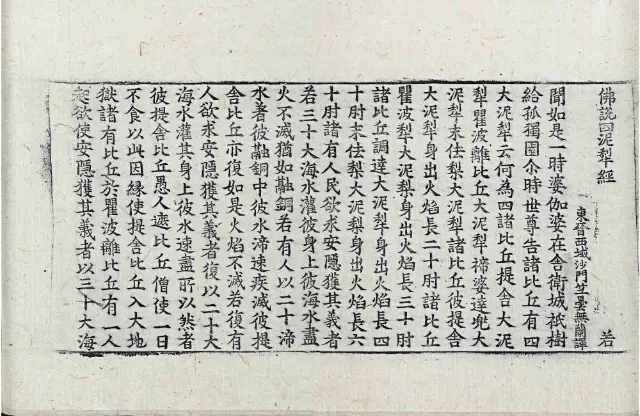 佛說四泥犁經
若
東晉西域沙門竺曇無蘭譯
聞如是一時婆伽婆在舍衛城祇樹
給孤獨園尒時世尊告諸比丘有四
大泥犁云何為四諸比丘提舍大泥
犁瞿波離比丘大泥犁禘婆達兜大
泥犁末佉梨大泥犁諸比丘彼提舍
大泥犁身出火焰長二十肘諸比丘
瞿波犁大泥犁身出火焰長三十肘
諸比丘調達大泥犁身出火焰長四
十肘末佉梨大泥犁身出火焰長六
十肘諸有人民欲求安隱獲其義者
若三十大海水灌彼身上彼海水盡
火不滅猶如融銅若有人以二十渧
水著彼融銅中彼水渧速疾滅彼提
舍比丘亦復如是火焰不滅若復有
人欲求安隱獲其義者復以二十大
海水灌其身上彼水速盡所以然者
彼提舍比丘愚人遮比丘僧使一日
不食以此因緣使提舍比丘入大地
獄諸有比丘於瞿波離比丘有一人
起欲使安隱獲其義者以三十大海